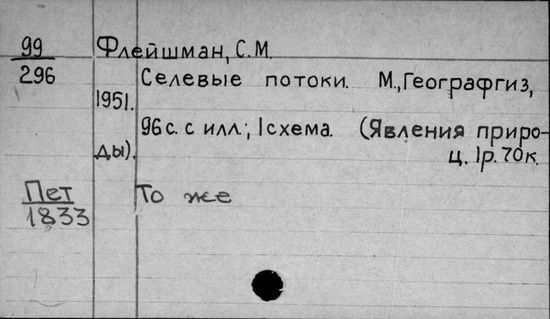 99 Флейшман, С.М.
296 Селевые потоки. М., Географгиз,
1951.
96 с. с илл.; 1 схема. (Явления приро-
ды). ц. 1р. 70к.
Пет То же
1833